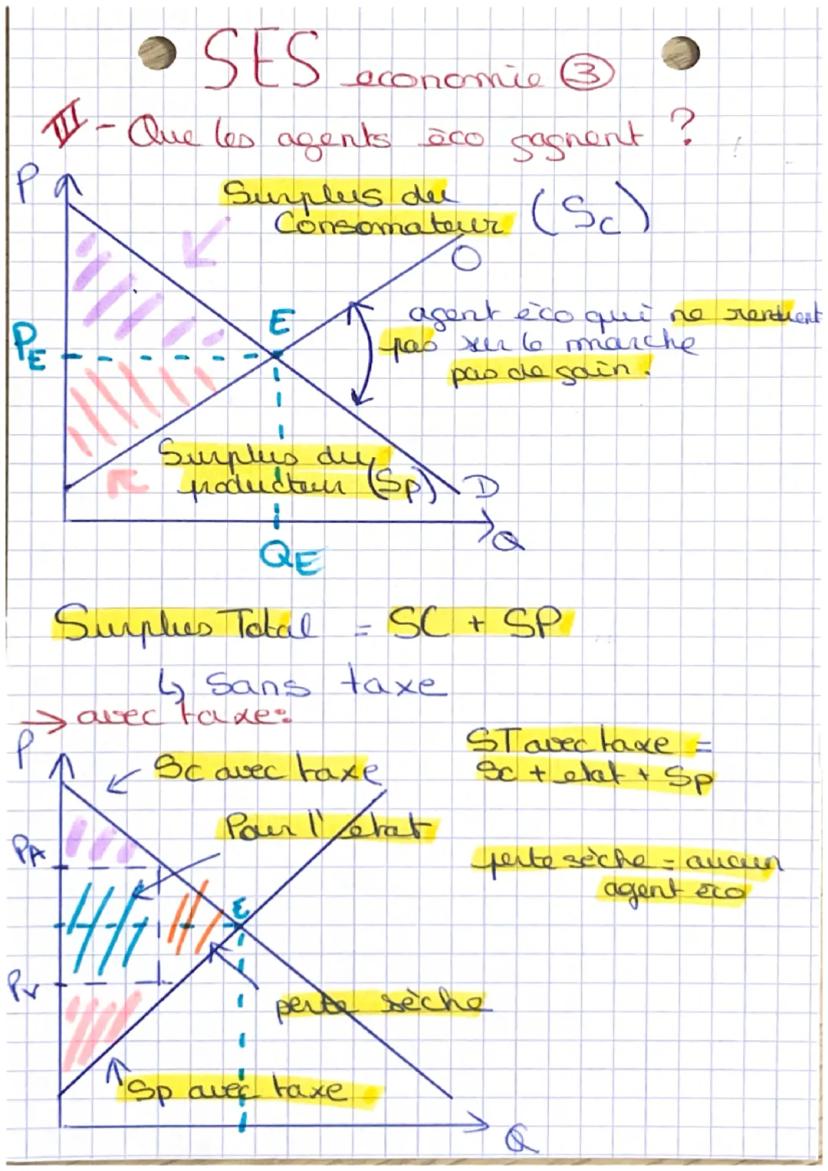 SES economie ③
III - Que les agents éco gagnent ?
P
Surplus du
Consomateur (Sc)
O
agent éco qui ne rentrent
pas sur le marche
pas de gain.
E
PE
Surplus du
producteur (Sp)
D
Q
QE
Surplus Total = SC + SP
↳ Sans taxe
→ avec taxe:
P
Sc avec taxe
ST avec taxe =
Sc + etat + Sp
Pour l'état
PA
perte sèche = aucun
agent éco
E
PV
perte sèche
Sp avec taxe
Q